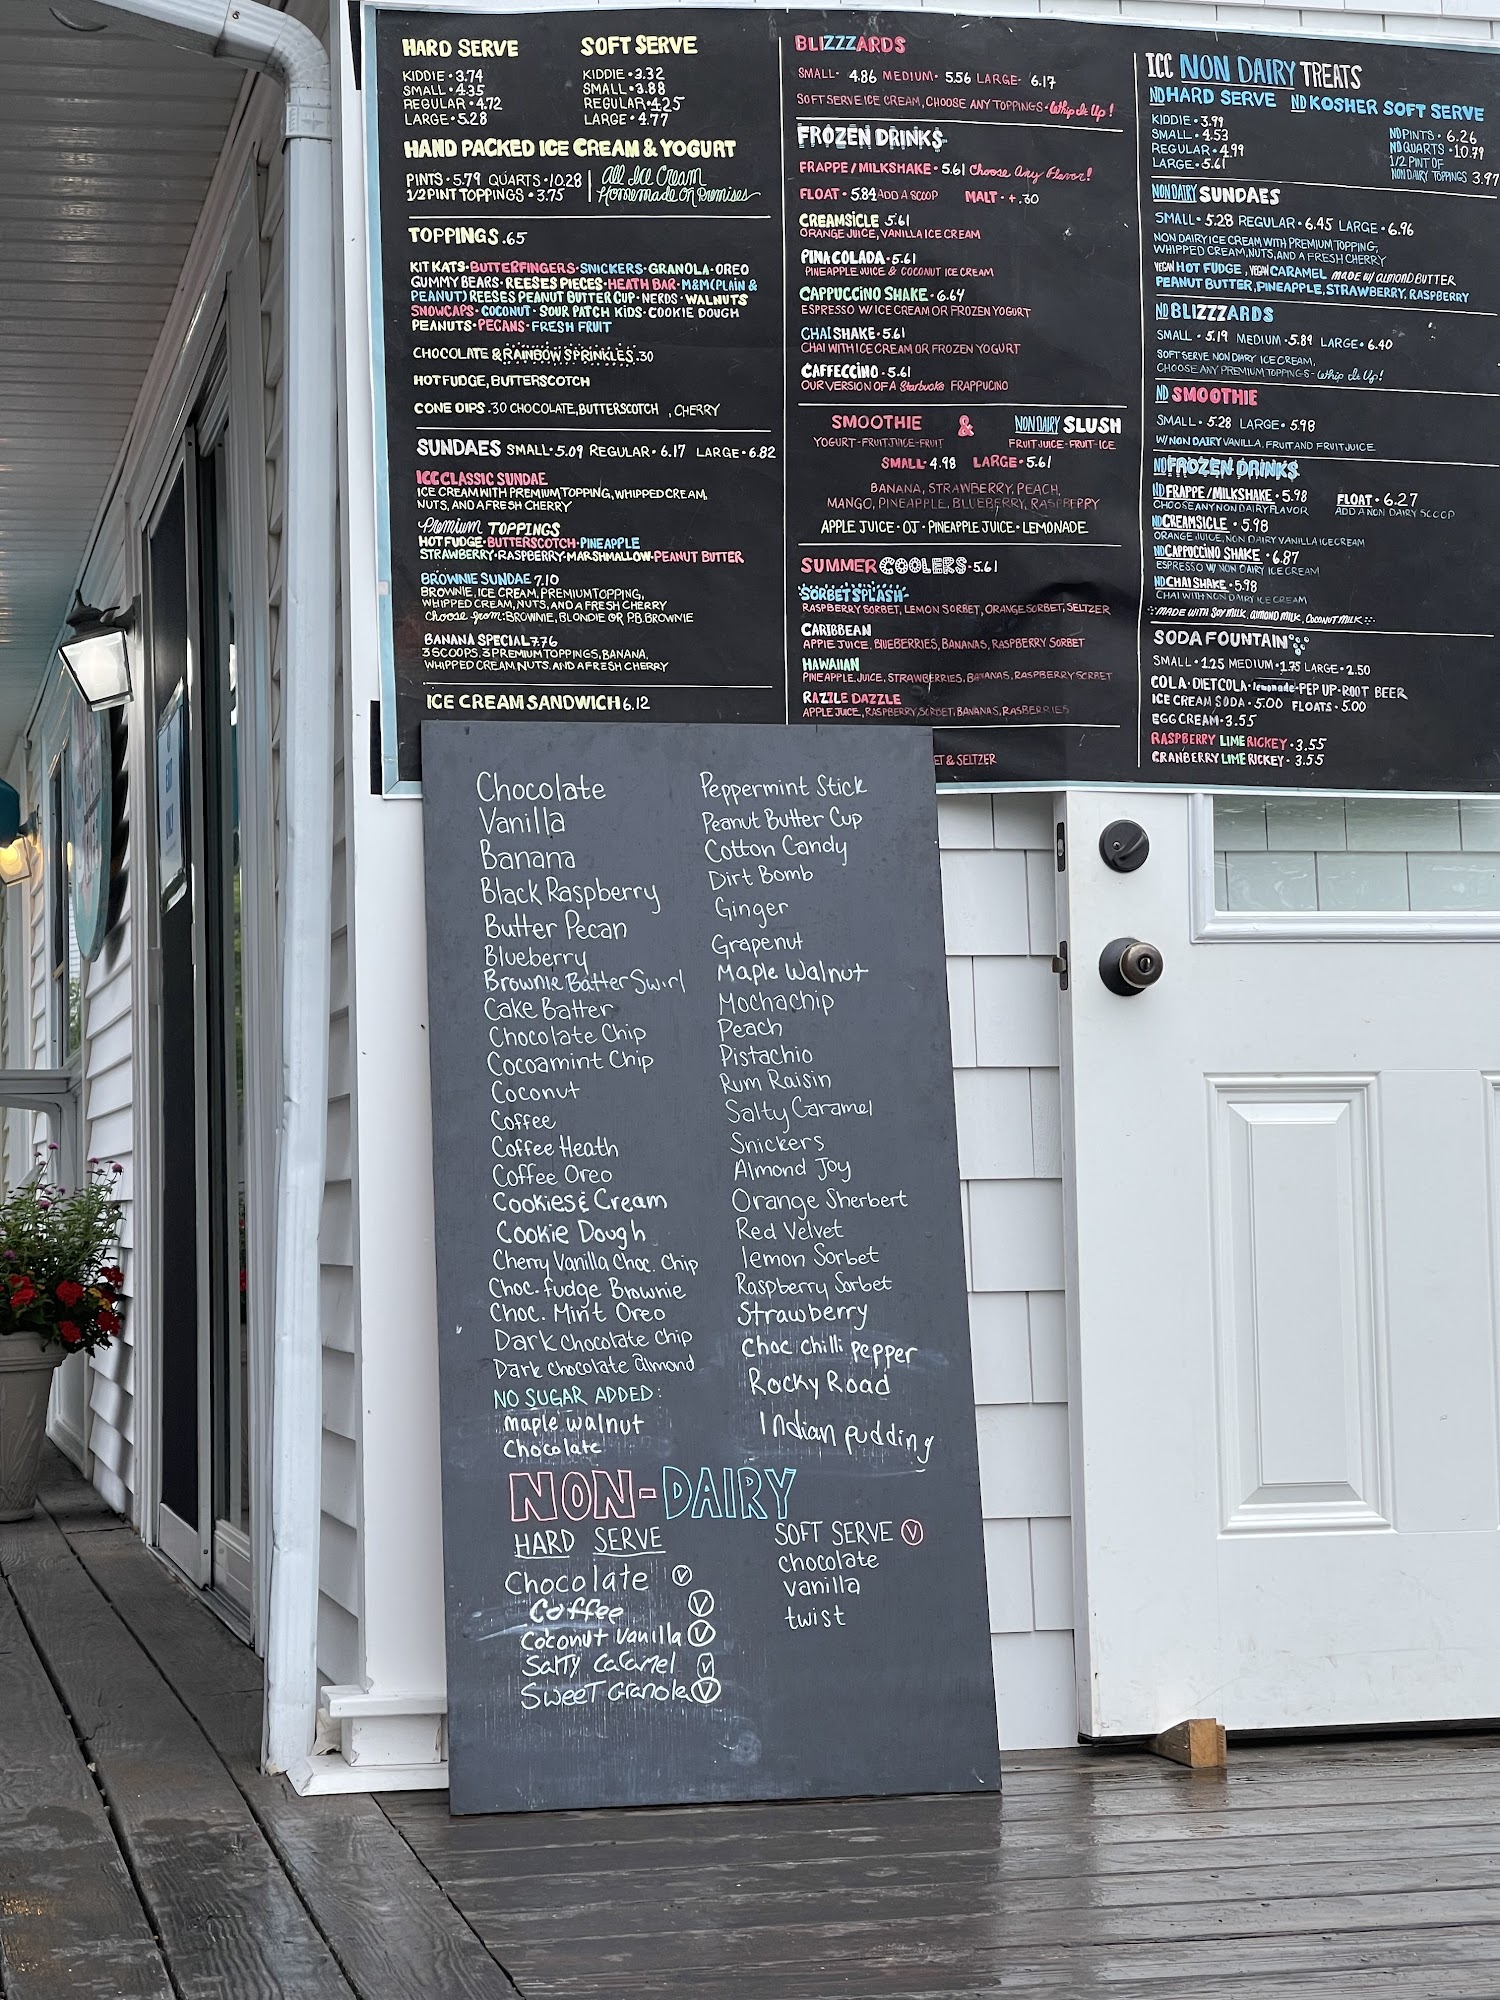 HARD SERVE
KIDDIE • 3.74
SMALL • 4.35
REGULAR • 4.72
LARGE • 5.28
SOFT SERVE
KIDDIE • 3.32
SMALL • 3.88
REGULAR • 4.25
LARGE • 4.77
HAND PACKED ICE CREAM & YOGURT
PINTS • 5.79 QUARTS • 10.28
1/2 PINT TOPPINGS • 3.75
All Ice Cream
Homemade On Premises
TOPPINGS .65
KIT KATS • BUTTERFINGERS • SNICKERS • GRANOLA • OREO
GUMMY BEARS • REESES PIECES • HEATH BAR • M&M (PLAIN &
PEANUT) REESES PEANUT BUTTER CUP • NERDS • WALNUTS
SNOWCAPS • COCONUT • SOUR PATCH KIDS • COOKIE DOUGH
PEANUTS • PECANS • FRESH FRUIT
CHOCOLATE & RAINBOW SPRINKLES .30
HOT FUDGE, BUTTERSCOTCH
CONE DIPS .30 CHOCOLATE, BUTTERSCOTCH , CHERRY
SUNDAES SMALL • 5.09 REGULAR • 6.17 LARGE • 6.82
ICC CLASSIC SUNDAE
ICE CREAM WITH PREMIUM TOPPING, WHIPPED CREAM,
NUTS, AND A FRESH CHERRY
Premium TOPPINGS
HOT FUDGE • BUTTERSCOTCH • PINEAPPLE
STRAWBERRY • RASPBERRY • MARSHMALLOW • PEANUT BUTTER
BROWNIE SUNDAE 7.10
BROWNIE, ICE CREAM, PREMIUM TOPPING,
WHIPPED CREAM, NUTS, AND A FRESH CHERRY
Choose from: BROWNIE, BLONDIE OR P.B. BROWNIE
BANANA SPECIAL 7.76
3 SCOOPS, 3 PREMIUM TOPPINGS, BANANA,
WHIPPED CREAM, NUTS, AND A FRESH CHERRY
ICE CREAM SANDWICH 6.12
BLIZZZARDS
SMALL • 4.86 MEDIUM • 5.56 LARGE • 6.17
SOFT SERVE ICE CREAM, CHOOSE ANY TOPPINGS • Whip It Up!
FROZEN DRINKS
FRAPPE / MILKSHAKE • 5.61 Choose Any Flavor!
FLOAT • 5.84 ADD A SCOOP MALT • + .30
CREAMSICLE 5.61
ORANGE JUICE, VANILLA ICE CREAM
PINA COLADA • 5.61
PINEAPPLE JUICE & COCONUT ICE CREAM
CAPPUCCINO SHAKE • 6.64
ESPRESSO W/ ICE CREAM OR FROZEN YOGURT
CHAI SHAKE • 5.61
CHAI WITH ICE CREAM OR FROZEN YOGURT
CAFFECCINO • 5.61
OUR VERSION OF A Starbucks FRAPPUCINO
SMOOTHIE & NON DAIRY SLUSH
YOGURT - FRUIT JUICE - FRUIT FRUIT JUICE - FRUIT - ICE
SMALL • 4.98 LARGE • 5.61
BANANA, STRAWBERRY, PEACH,
MANGO, PINEAPPLE, BLUEBERRY, RASPBERRY
APPLE JUICE • OJ • PINEAPPLE JUICE • LEMONADE
SUMMER COOLERS • 5.61
SORBET SPLASH
RASPBERRY SORBET, LEMON SORBET, ORANGE SORBET, SELTZER
CARIBBEAN
APPLE JUICE, BLUEBERRIES, BANANAS, RASPBERRY SORBET
HAWAIIAN
PINEAPPLE JUICE, STRAWBERRIES, BANANAS, RASPBERRY SORBET
RAZZLE DAZZLE
APPLE JUICE, RASPBERRY SORBET, BANANAS, RASBERRIES
ET & SELTZER
ICC NON DAIRY TREATS
ND HARD SERVE ND KOSHER SOFT SERVE
KIDDIE • 3.99
SMALL • 4.53
REGULAR • 4.99
LARGE • 5.61
ND PINTS • 6.26
ND QUARTS • 10.79
1/2 PINT OF
NON DAIRY TOPPINGS 3.97
NON DAIRY SUNDAES
SMALL • 5.28 REGULAR • 6.45 LARGE • 6.96
NON DAIRY ICE CREAM WITH PREMIUM TOPPING,
WHIPPED CREAM, NUTS, AND A FRESH CHERRY
VEGAN HOT FUDGE, VEGAN CARAMEL MADE W/ ALMOND BUTTER
PEANUT BUTTER, PINEAPPLE, STRAWBERRY, RASPBERRY
ND BLIZZZARDS
SMALL • 5.19 MEDIUM • 5.89 LARGE • 6.40
SOFT SERVE NON DAIRY ICE CREAM,
CHOOSE ANY PREMIUM TOPPINGS - Whip It Up!
ND SMOOTHIE
SMALL • 5.28 LARGE • 5.98
W/ NON DAIRY VANILLA, FRUIT AND FRUIT JUICE
ND FROZEN DRINKS
ND FRAPPE / MILKSHAKE • 5.98
CHOOSE ANY NON DAIRY FLAVOR
FLOAT • 6.27
ADD A NON DAIRY SCOOP
ND CREAMSICLE • 5.98
ORANGE JUICE, NON DAIRY VANILLA ICE CREAM
ND CAPPUCCINO SHAKE • 6.87
ESPRESSO W/ NON DAIRY ICE CREAM
ND CHAI SHAKE • 5.98
CHAI WITH NON DAIRY ICE CREAM
MADE WITH SOY MILK, ALMOND MILK, COCONUT MILK
SODA FOUNTAIN
SMALL • 1.25 MEDIUM • 1.75 LARGE • 2.50
COLA • DIET COLA • lemonade • PEP UP • ROOT BEER
ICE CREAM SODA • 5.00 FLOATS • 5.00
EGG CREAM • 3.55
RASPBERRY LIME RICKEY • 3.55
CRANBERRY LIME RICKEY • 3.55
Chocolate
Vanilla
Banana
Black Raspberry
Butter Pecan
Blueberry
Brownie Batter Swirl
Cake Batter
Chocolate Chip
Cocoamint Chip
Coconut
Coffee
Coffee Heath
Coffee Oreo
Cookies & Cream
Cookie Dough
Cherry Vanilla Choc. Chip
Choc. Fudge Brownie
Choc. Mint Oreo
Dark Chocolate Chip
Dark Chocolate Almond
NO SUGAR ADDED:
maple walnut
Chocolate
Peppermint Stick
Peanut Butter Cup
Cotton Candy
Dirt Bomb
Ginger
Grapenut
Maple Walnut
Mochachip
Peach
Pistachio
Rum Raisin
Salty Caramel
Snickers
Almond Joy
Orange Sherbert
Red Velvet
lemon Sorbet
Raspberry Sorbet
Strawberry
Choc chilli pepper
Rocky Road
Indian pudding
NON-DAIRY
HARD SERVE
Chocolate V
Coffee V
Coconut Vanilla V
Salty Caramel V
Sweet Granola V
SOFT SERVE V
Chocolate
Vanilla
twist